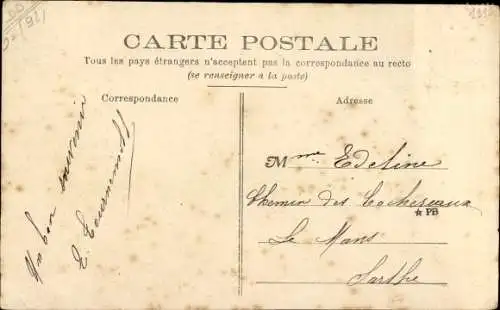 CARTE POSTALE
Tous les pays étrangers n'acceptent pas la correspondance au recto
(se renseigner à la poste)
Correspondance
Adresse
Un bon souvenir
Mme Edeline
Chemin des
★ PB
Le Mans
Sarthe